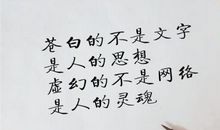 苍白的不是文字
是人的思想
虚幻的不是网络
是人的灵魂